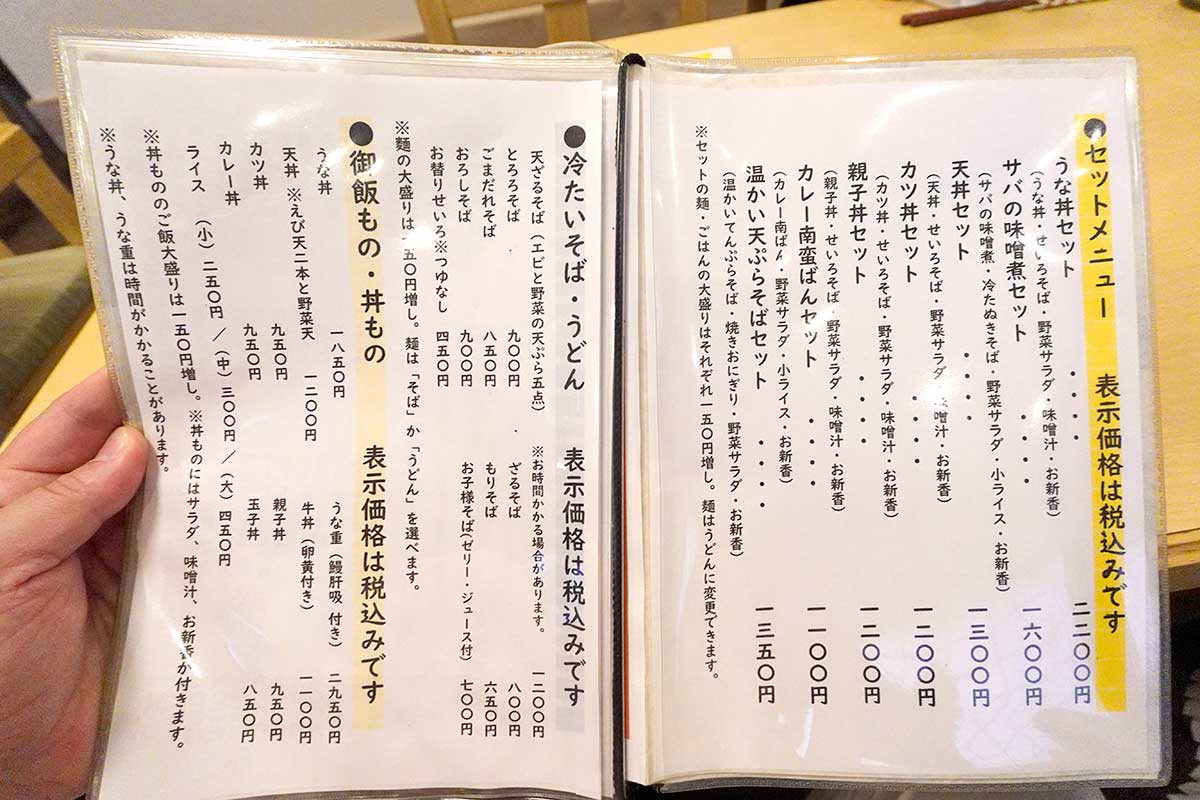 ●セットメニュー 表示価格は税込みです
うな丼セット ・・・・ 二二〇〇円
(うな丼・せいろそば・野菜サラダ・味噌汁・お新香)
サバの味噌煮セット ・・・・ 一六〇〇円
(サバの味噌煮・冷たぬきそば・野菜サラダ・小ライス・お新香)
天丼セット ・・・・ 一三〇〇円
(天丼・せいろそば・野菜サラダ・味噌汁・お新香)
カツ丼セット ・・・・ 一二〇〇円
(カツ丼・せいろそば・野菜サラダ・味噌汁・お新香)
親子丼セット ・・・・ 一二〇〇円
(親子丼・せいろそば・野菜サラダ・味噌汁・お新香)
カレー南蛮ばんセット ・・・・ 一一〇〇円
(カレー南ばん・野菜サラダ・小ライス・お新香)
温かい天ぷらそばセット ・・・・ 一三五〇円
(温かいてんぷらそば・焼きおにぎり・野菜サラダ・お新香)
※セットの麺・ごはんの大盛りはそれぞれ一五〇円増し。麺はうどんに変更できます。
●冷たいそば・うどん 表示価格は税込みです
天ざるそば(エビと野菜の天ぷら五点) ※お時間かかる場合があります。 一二〇〇円
とろろそば 九〇〇円 ざるそば 八〇〇円
ごまだれそば 八五〇円 もりそば 六五〇円
おろしそば 九〇〇円 お子様そば(ゼリー・ジュース付) 七〇〇円
お替りせいろ※つゆなし 四五〇円
※麺の大盛りは一五〇円増し。麺は「そば」か「うどん」を選べます。
●御飯もの・丼もの 表示価格は税込みです
うな丼 一八五〇円 うな重(鰻肝吸 付き) 二九五〇円
天丼 ※えび天二本と野菜天 一二〇〇円 牛丼(卵黄付き) 一一〇〇円
カツ丼 九五〇円 親子丼 九五〇円
カレー丼 九五〇円 玉子丼 八五〇円
ライス (小)二五〇円 /(中)三〇〇円 /(大)四五〇円
※丼もののご飯大盛りは一五〇円増し。※丼ものにはサラダ、味噌汁、お新香が付きます。
※うな丼、うな重は時間がかかることがあります。